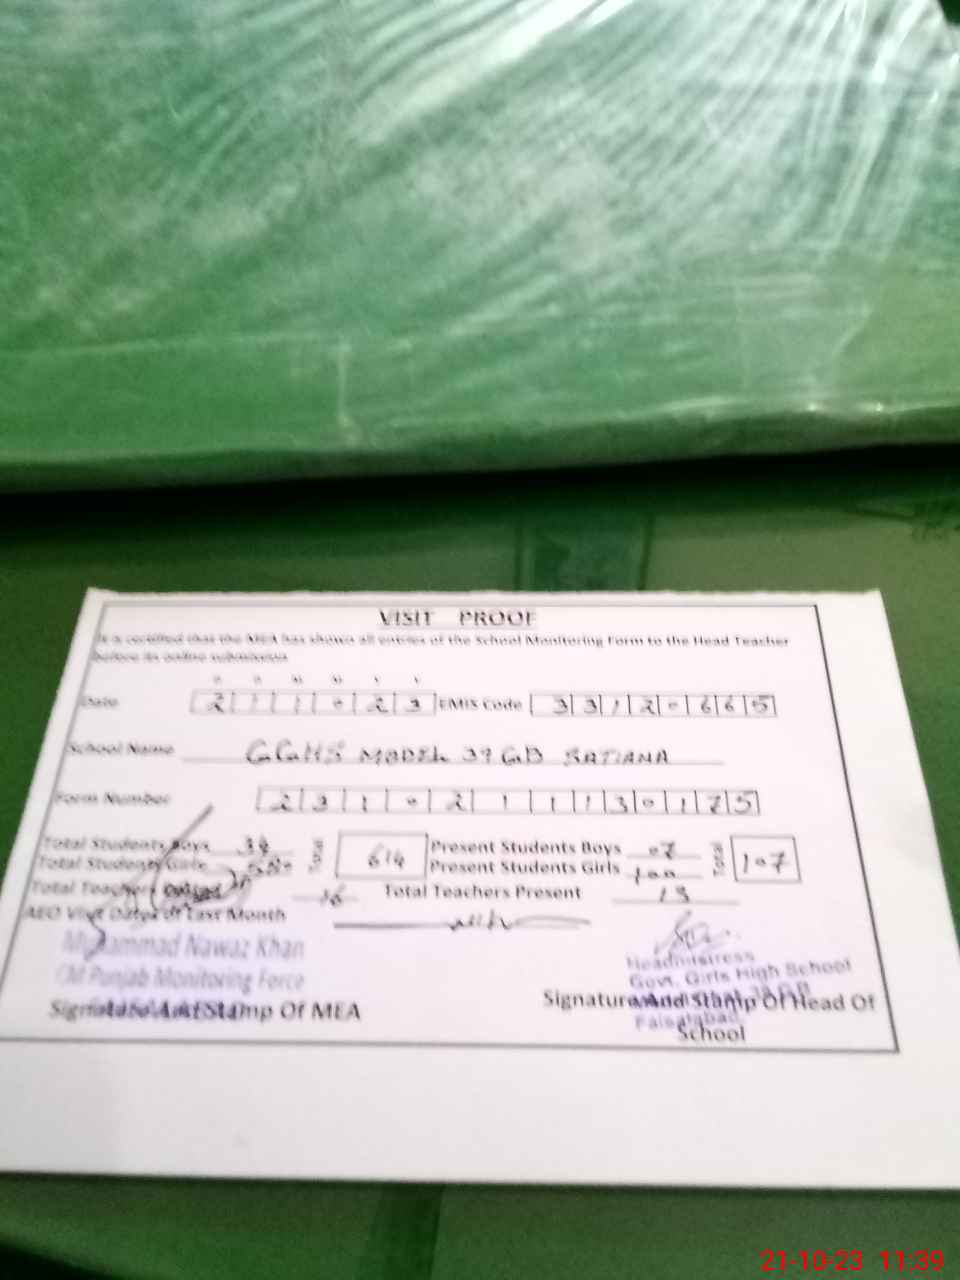 VISIT PROOF
It is certified that the MEA has shown all entries of the School Monitoring Form to the Head Teacher
before its online submission
D D M M Y Y
Date 2 1 1 0 2 3 EMIS Code 3 3 1 2 0 6 6 5
School Name GGHS MODEL 39 GB SATIANA
Form Number 2 3 1 0 2 1 1 1 3 0 1 7 5
Total Students Boys 34 Total 614 Present Students Boys 07 Total 107
Total Students Girls 580 Present Students Girls 100
Total Teachers 16 Total Teachers Present 13
AEO Visit Dates of Last Month
Muhammad Nawaz Khan
CM Punjab Monitoring Force
Signature And Stamp Of MEA
Headmistress
Govt. Girls High School
Faisalabad
Signature And Stamp Of Head Of
School
21-10-23 11:39